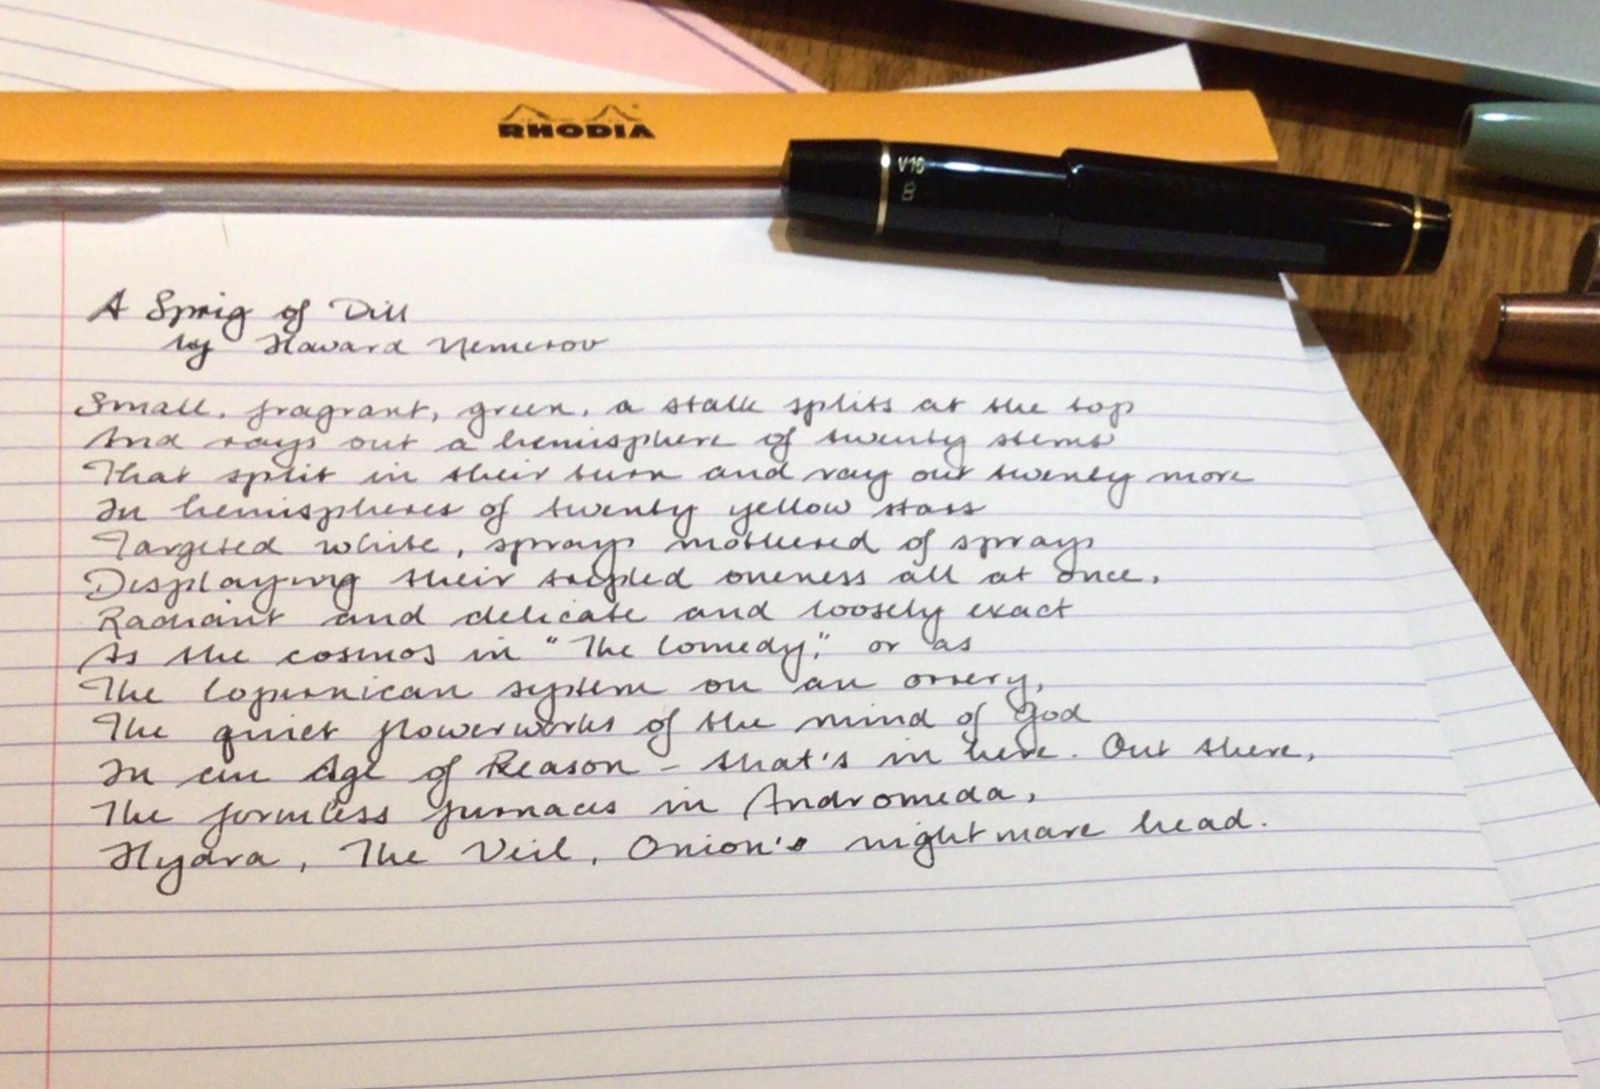 RHODIA
V16
B
A Sprig of Dill
by Howard Nemerov
Small, fragrant, green, a stalk splits at the top
And rays out a hemisphere of twenty stems
That split in their turn and ray out twenty more
In hemispheres of twenty yellow stars
Targeted white, sprays mothered of sprays
Displaying their tripled oneness all at once,
Radiant and delicate and loosely exact
As the cosmos in "The Comedy," or as
The Copernican system on an orrery,
The quiet flowerworks of the mind of God
In an Age of Reason – that's in here. Out there,
The formless furnaces in Andromeda,
Hydra, The Veil, Orion's nightmare head.